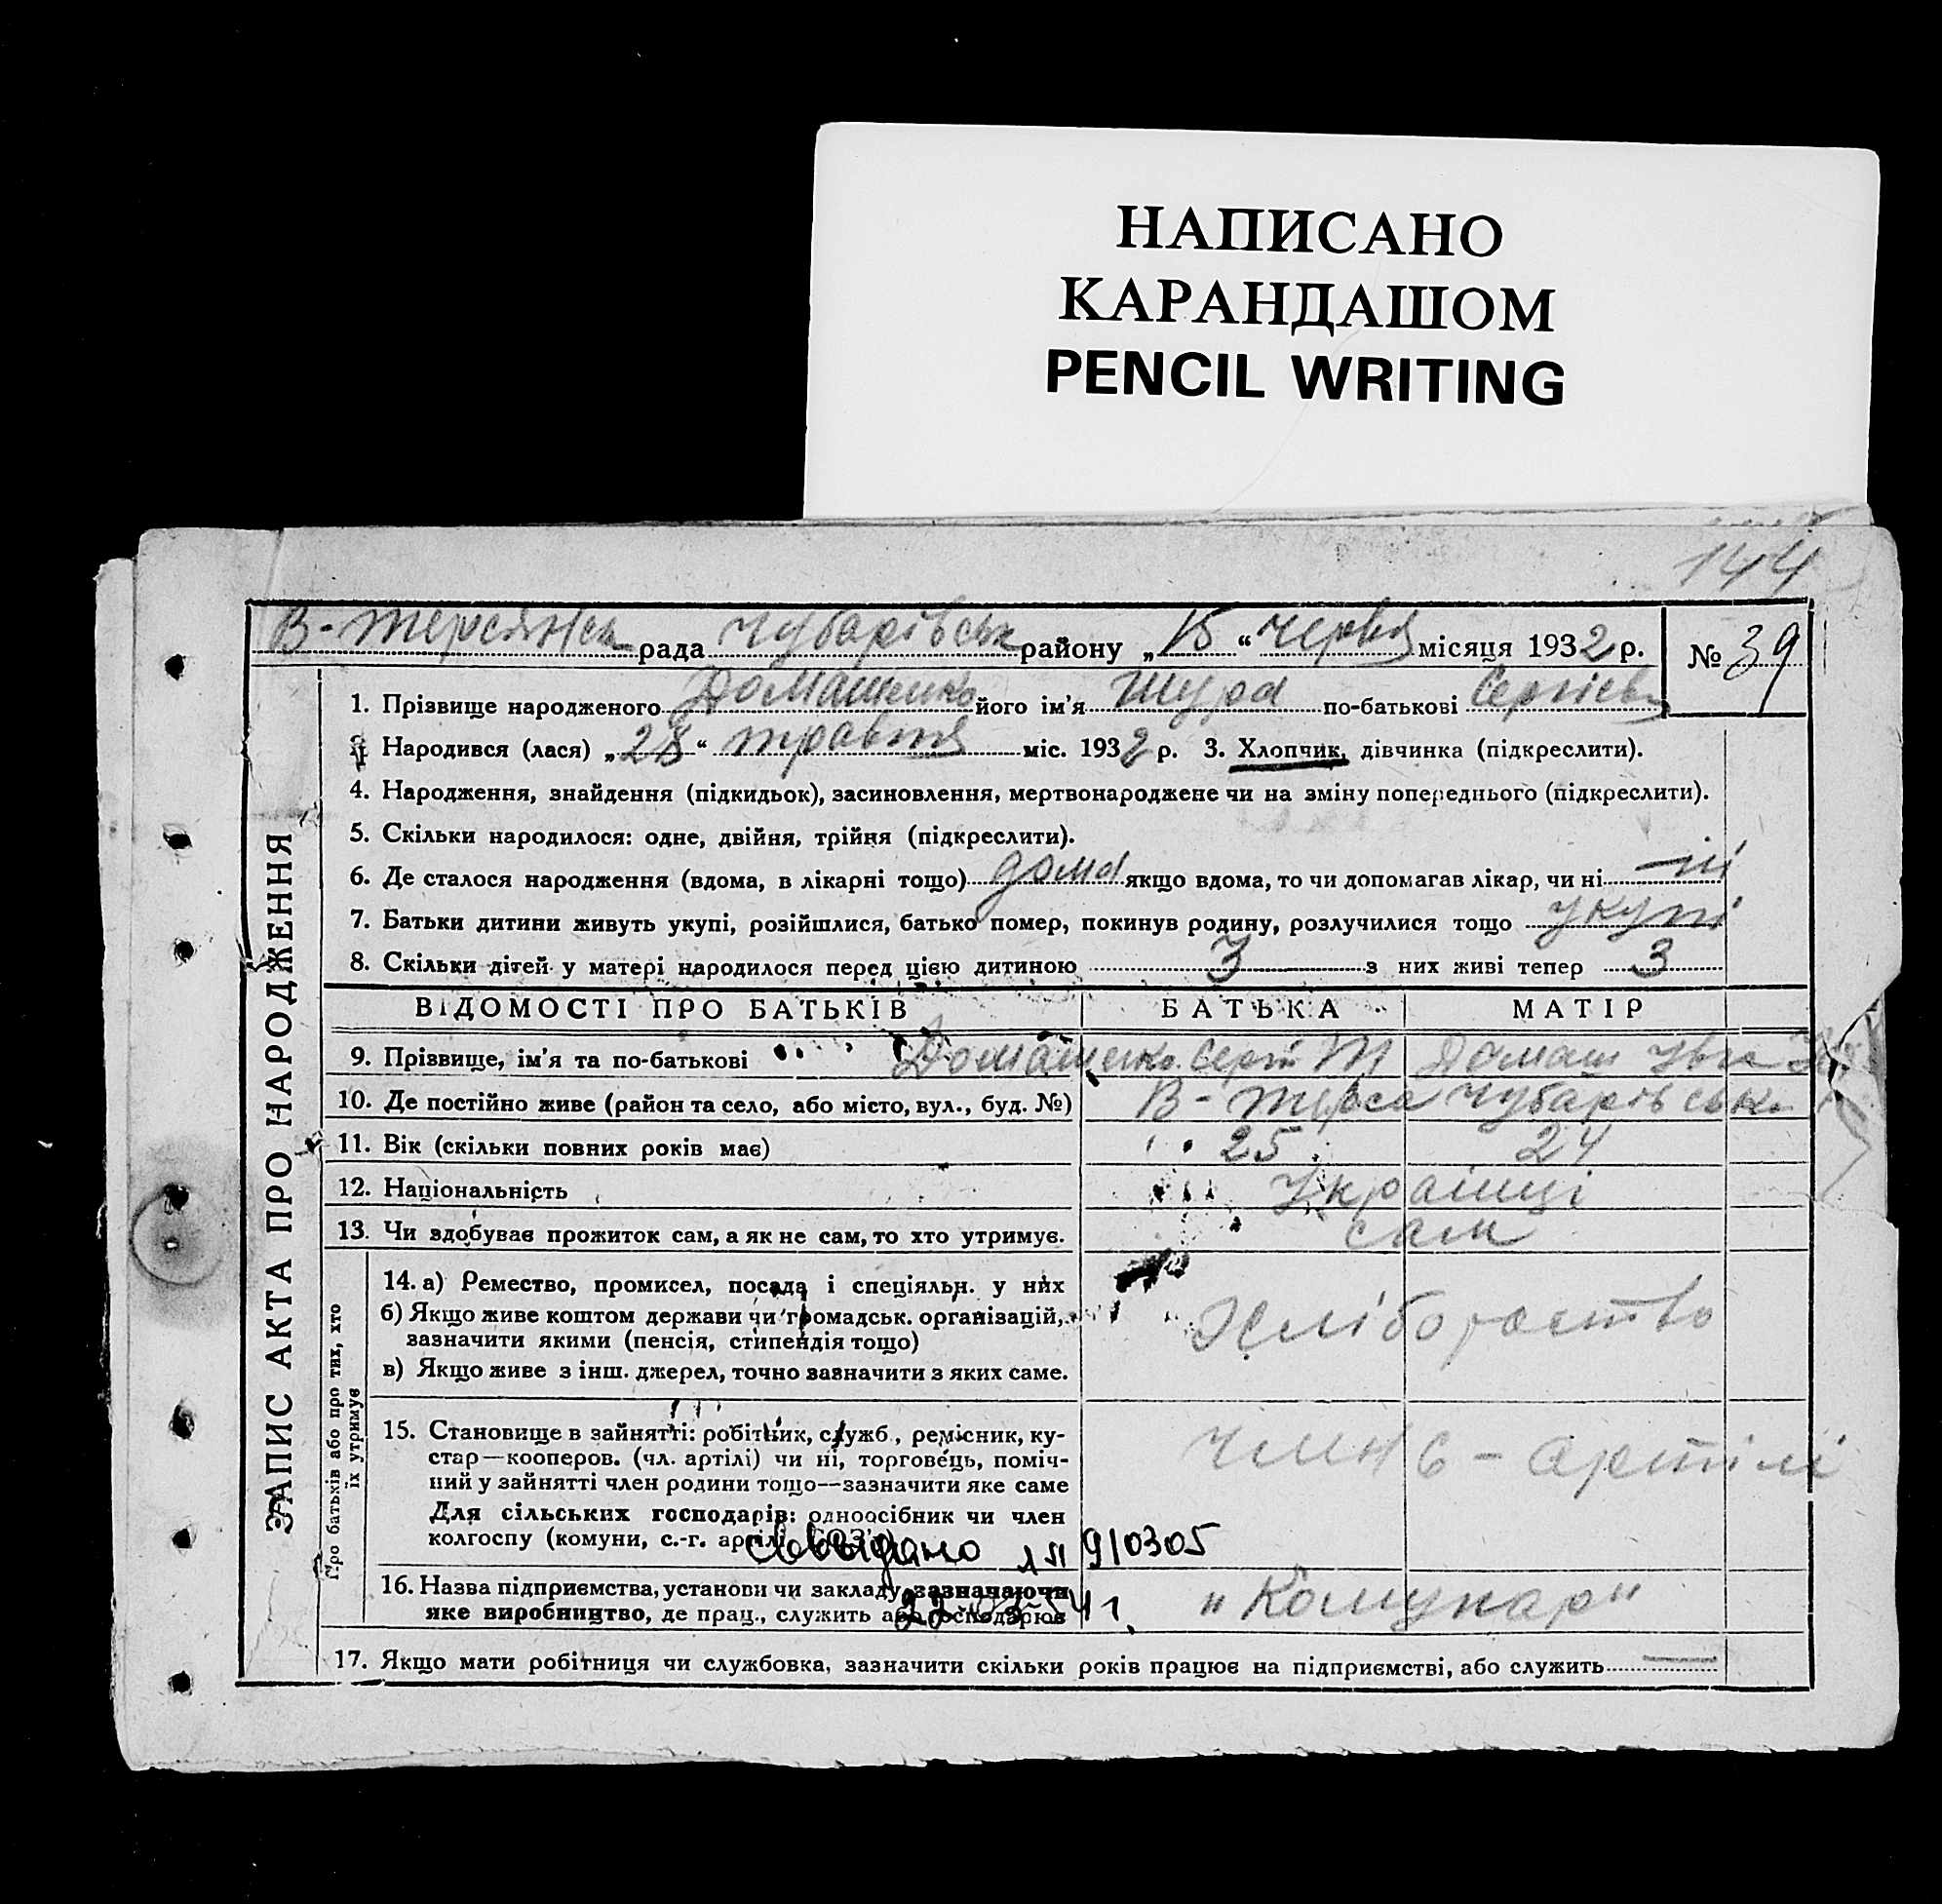 НАПИСАНО
КАРАНДАШОМ
PENCIL WRITING
144
В-Терсянськ рада Чубарівськ району „15“ Червня місяця 1932 р. № 39
1. Прізвище народженого Домашенко його ім'я Шура по-батькові Сергієв
2. Народився (лася) „28“ травня міс. 1932 р. 3. Хлопчик, дівчинка (підкреслити).
4. Народження, знайдення (підкидьок), засиновлення, мертвонароджене чи на зміну попереднього (підкреслити).
5. Скільки народилося: одне, двійня, трійня (підкреслити).
6. Де сталося народження (вдома, в лікарні тощо) дома якщо вдома, то чи допомагав лікар, чи ні ні
7. Батьки дитини живуть укупі, розійшлися, батько помер, покинув родину, розлучилися тощо укупі
8. Скільки дітей у матері народилося перед цією дитиною 3 з них живі тепер 3
ЗАПИС АКТА ПРО НАРОДЖЕННЯ
ВІДОМОСТІ ПРО БАТЬКІВ БАТЬКА МАТІР
9. Прізвище, ім'я та по-батькові Домашенко Сергій Т Домаш
10. Де постійно живе (район та село, або місто, вул., буд. №) В-Терса Чубарівськ
11. Вік (скільки повних років має) 25 24
12. Національність Українці
13. Чи здобував прожиток сам, а як не сам, то хто утримує. сам
Про батьків або про тих, хто
їх утримує
14. а) Ремество, промисел, посада і спеціяльн. у них
б) Якщо живе коштом держави чи громадськ. організацій,
зазначити якими (пенсія, стипендія тощо)
в) Якщо живе з інш. джерел, точно зазначити з яких саме.
Хліборобство
15. Становище в зайнятті: робітник, служб., ремісник, ку-
стар—кооперов. (чл. артілі) чи ні, торговець, поміч-
ний у зайнятті член родини тощо—зазначити яке саме
Для сільських господарів: одноосібник чи член
колгоспу (комуни, с.-г. артілі
член с-артілі
910305
16. Назва підприємства, установи чи закладу, зазначаючи
яке виробництво, де прац., служить або господарює
„Комунар“
17. Якщо мати робітниця чи службовка, зазначити скільки років працює на підприємстві, або служить —